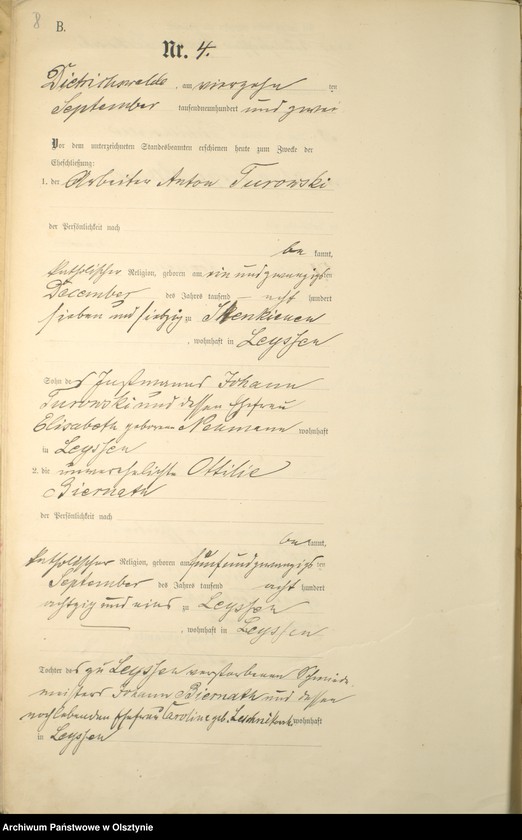 8
B.
Nr. 4.
Dietrichswalde, am vierzehn ten
September tausendneunhundert und zwei
Vor dem unterzeichneten Standesbeamten erschienen heute zum Zwecke der
Eheschließung:
1. der Arbeiter Anton Turowski
der Persönlichkeit nach
be kannt,
katholischer Religion, geboren am ein und zwanzigsten
December des Jahres tausend acht hundert
sieben und siebzig zu
, wohnhaft in Leyssen
Sohn des Instmanns Johann
Turowski und dessen Ehefrau
Elisabeth geborene Neumann wohnhaft
in Leyssen
2. die unverehelichte Ottilie
Biernath
der Persönlichkeit nach
be kannt,
katholischer Religion, geboren am fünfundzwanzigs ten
September des Jahres tausend acht hundert
achtzig und eins zu Leyssen
, wohnhaft in Leyssen
Tochter des zu Leyssen verstorbenen Schmiede-
meisters Johann Biernath und dessen
noch lebenden Ehefrau Caroline geb. wohnhaft
in Leyssen
Archiwum Państwowe w Olsztynie